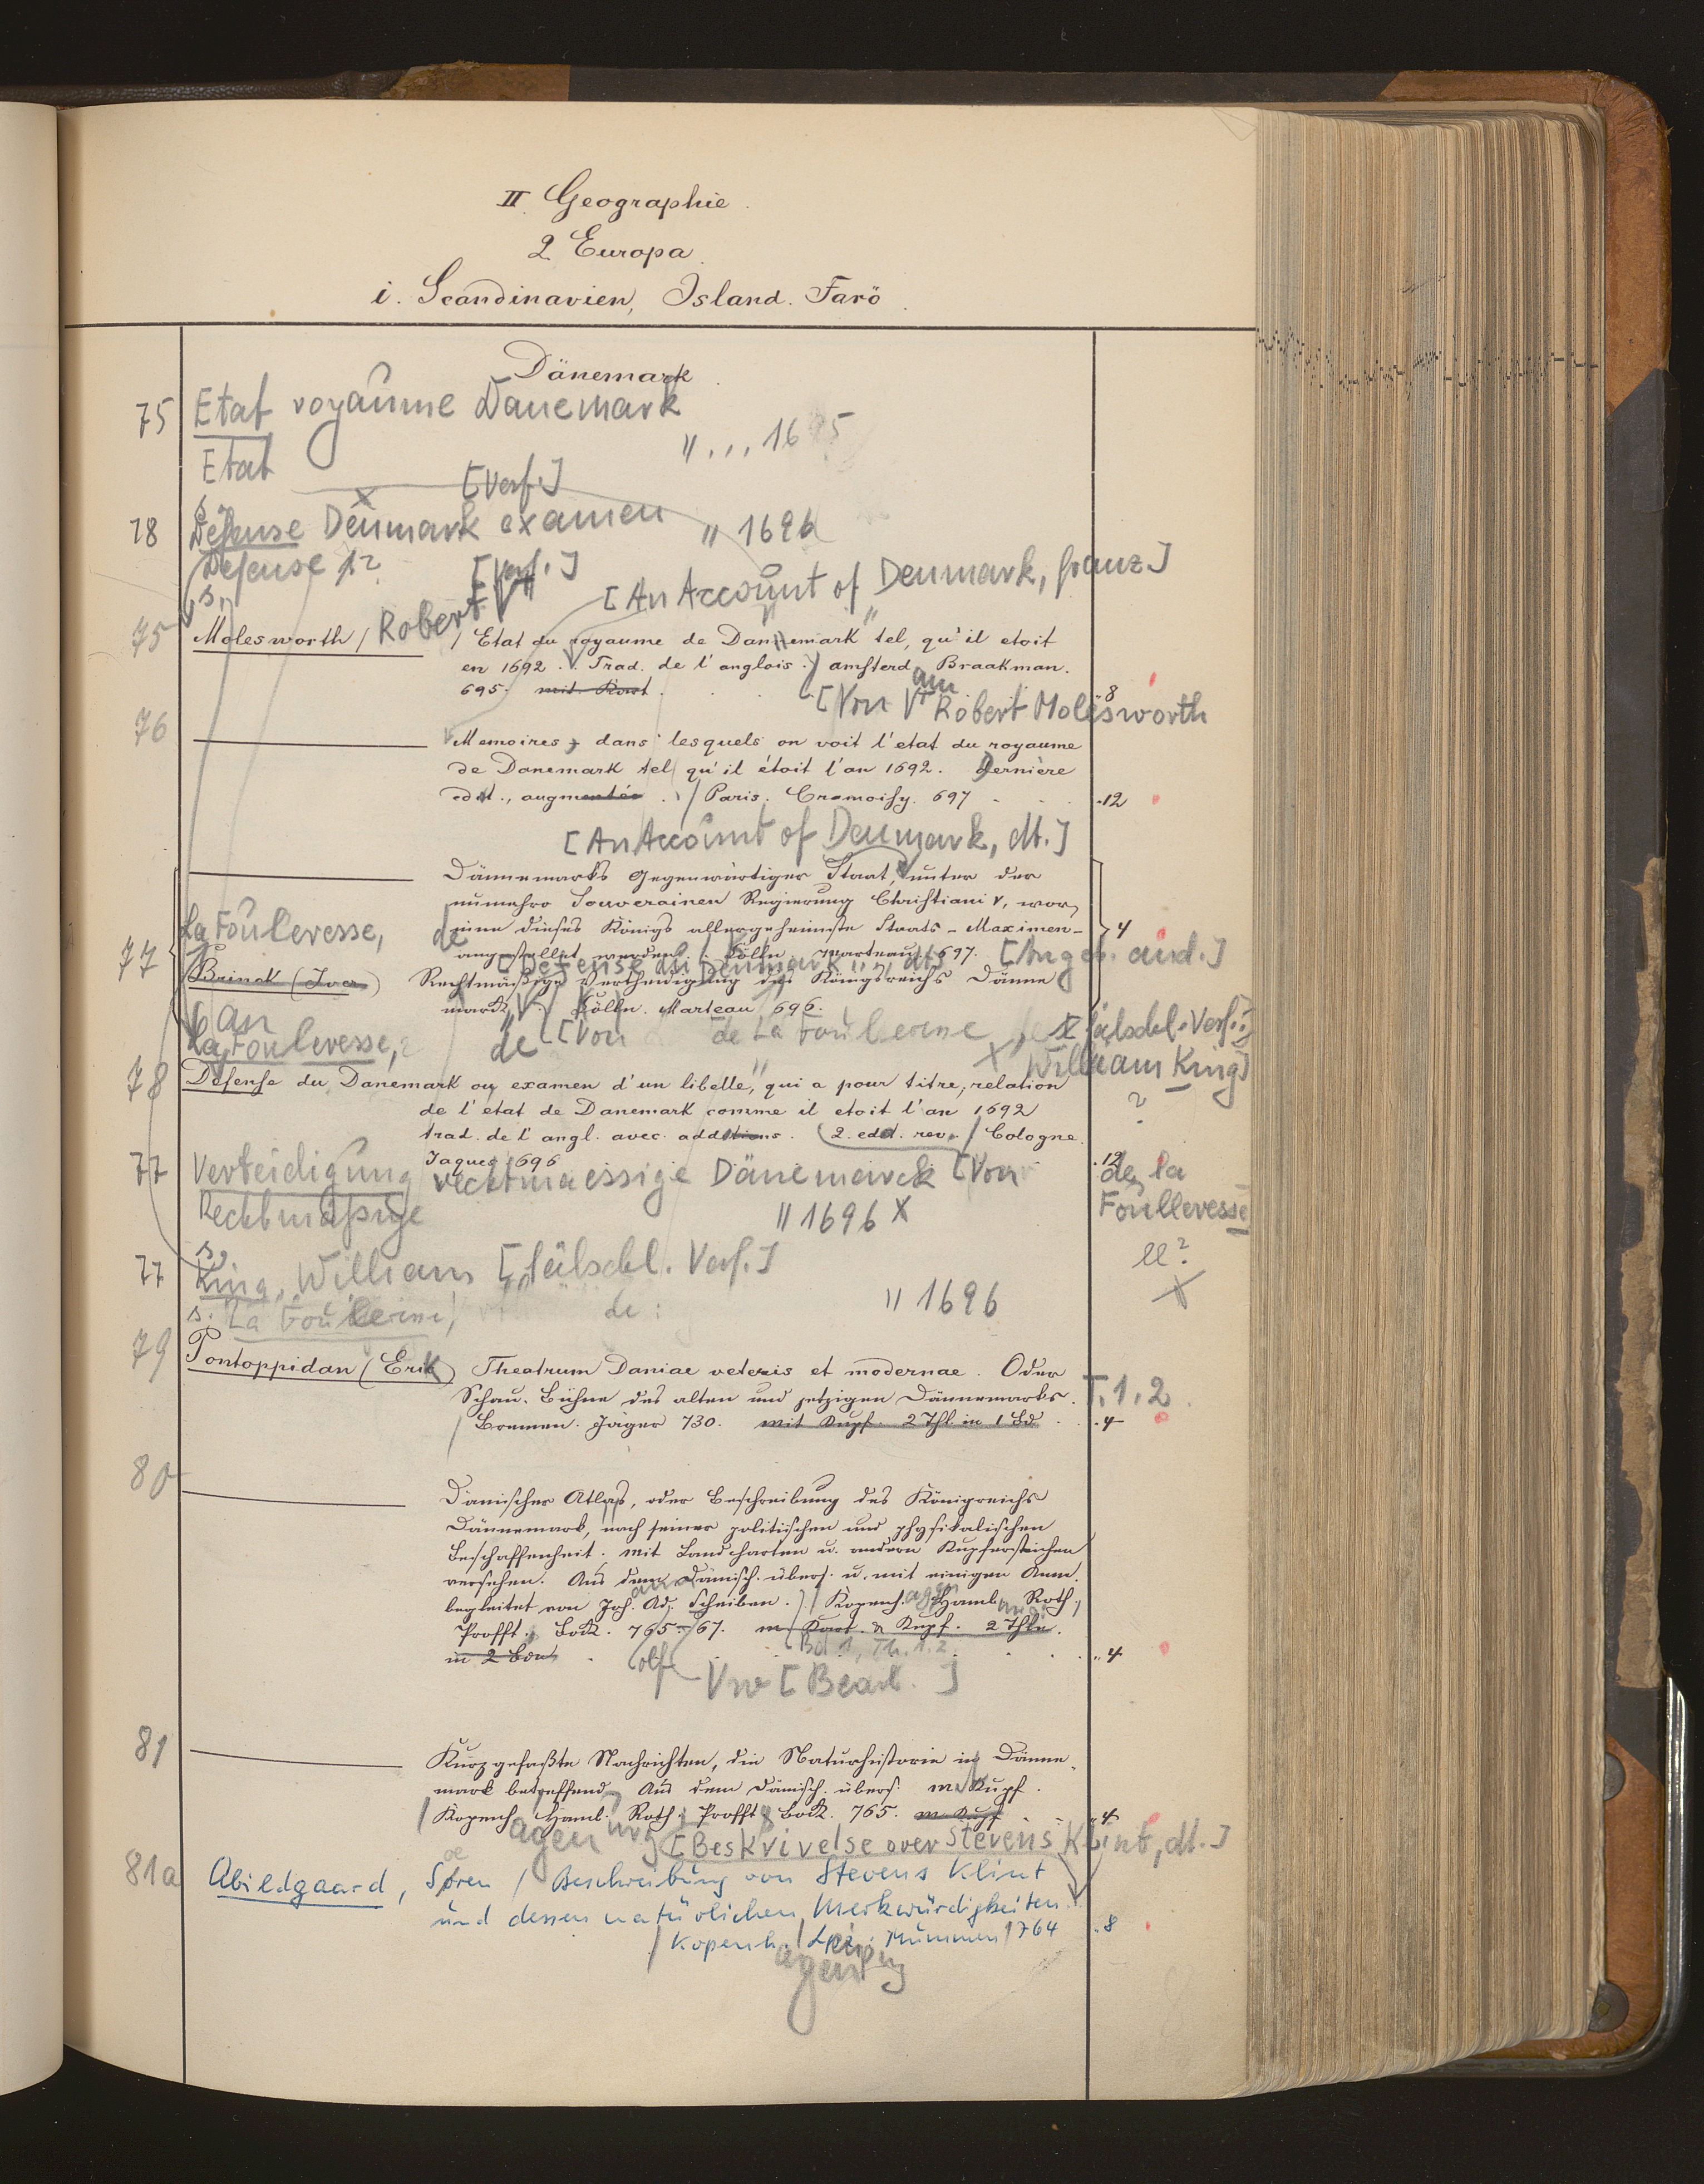 II. Geographie.
2 Europa.
i. Scandinavien, Island. Farö.
Dänemark.
75 Etat royaume Danemark
" ... 1695
Etat [Verf.]
s.
78 Défense Denmark examen " 1696
Defense [Verf.]
s.
[An Account of Denmark, franz]
75 Molesworth / Robert / Etat du royaume de Dannemark tel, qu'il etoit
en 1692. Trad. de l'anglois. amsterdam Braakman.
695. mit Kart. 8
[Von Robert Molesworth
76 Memoires, dans lesquels on voit l'etat du royaume
de Danemark tel qu'il étoit l'an 1692. Dernière
edit., augmentée. / Paris. Cramoisy. 697 12
[An Account of Denmark, dt.]
Dännemarks Gegenwärtiger Staat, unter der
nunmehro Souverainen Regierung Christiani V, wor,
inne dieses Königs allergeheimste Staats-Maximen 4
angestellet werden. Cölln. Marteau. 697. [Angeb. an d.]
La Foulevesse, de
[Defense du Denmark, dt]
77 Brinck (Iver) Rechtmäßige Vertheidigung des Königsreichs Dänne
marck. Cölln. Marteau 696.
an
La Foulevesse, de [Von de La Foulerine fälschl. Verf.:
William King]
?
78 Défense du Danemark ou examen d'un libelle, qui a pour titre, relation
de l'etat de Danemark comme il etoit l'an 1692
trad. de l'angl. avec additions. (2. edit. rev. / Cologne.
Jaques 696 12
77 Verteidigung rechtmaessige Dänemarck [Von de la
Foullevesse
Rechtmäßige " 1696 X
ll?
s.
77 King, William [fälschl. Verf.]
" 1696
s. La Foulerine, de
79 Pontoppidan (Erik) Theatrum Daniae veteris et modernae. Oder
Schau-Bühne des alten und jetzigen Dännemarks. T. 1. 2
/ Bremen. Jäger 730. mit Kupf. 2 Thl. in 1 Bd. 4
80 Dänischer Atlas, oder Beschreibung des Königreichs
Dännemark, nach seiner politischen und physikalischen
Beschaffenheit. Mit Landcharten u. andern Kupferstichen
versehen. Aus dem Dänisch. übers. u. mit einigen Anm.
begleitet von Joh. Ad. Scheiben. / Kopenhagen Hamb. Roth.,
Profft. Bock. 765-67. m Kart. & Kupf. 2 Thle.
in 2 Bon Bd 1, Th. 1. 2. 4
olf Vw [Bearb.]
81 Kurzgefaßte Nachrichten, die Naturhistorie in Dänne-
mark betreffend. Aus dem Dänisch. übers. m. Kupf.
/ Kopenhagen Hamburg Roth. Profft, Bock. 765. m Kupf 4
[Beskrivelse over Stevens Klint, dt.]
81a Abildgaard, Søren / Beschreibung von Stevens Klint
und dessen natürlichen Merkwürdigkeiten.
/ Kopenhagen / Leipzig. Mummen / 764 8